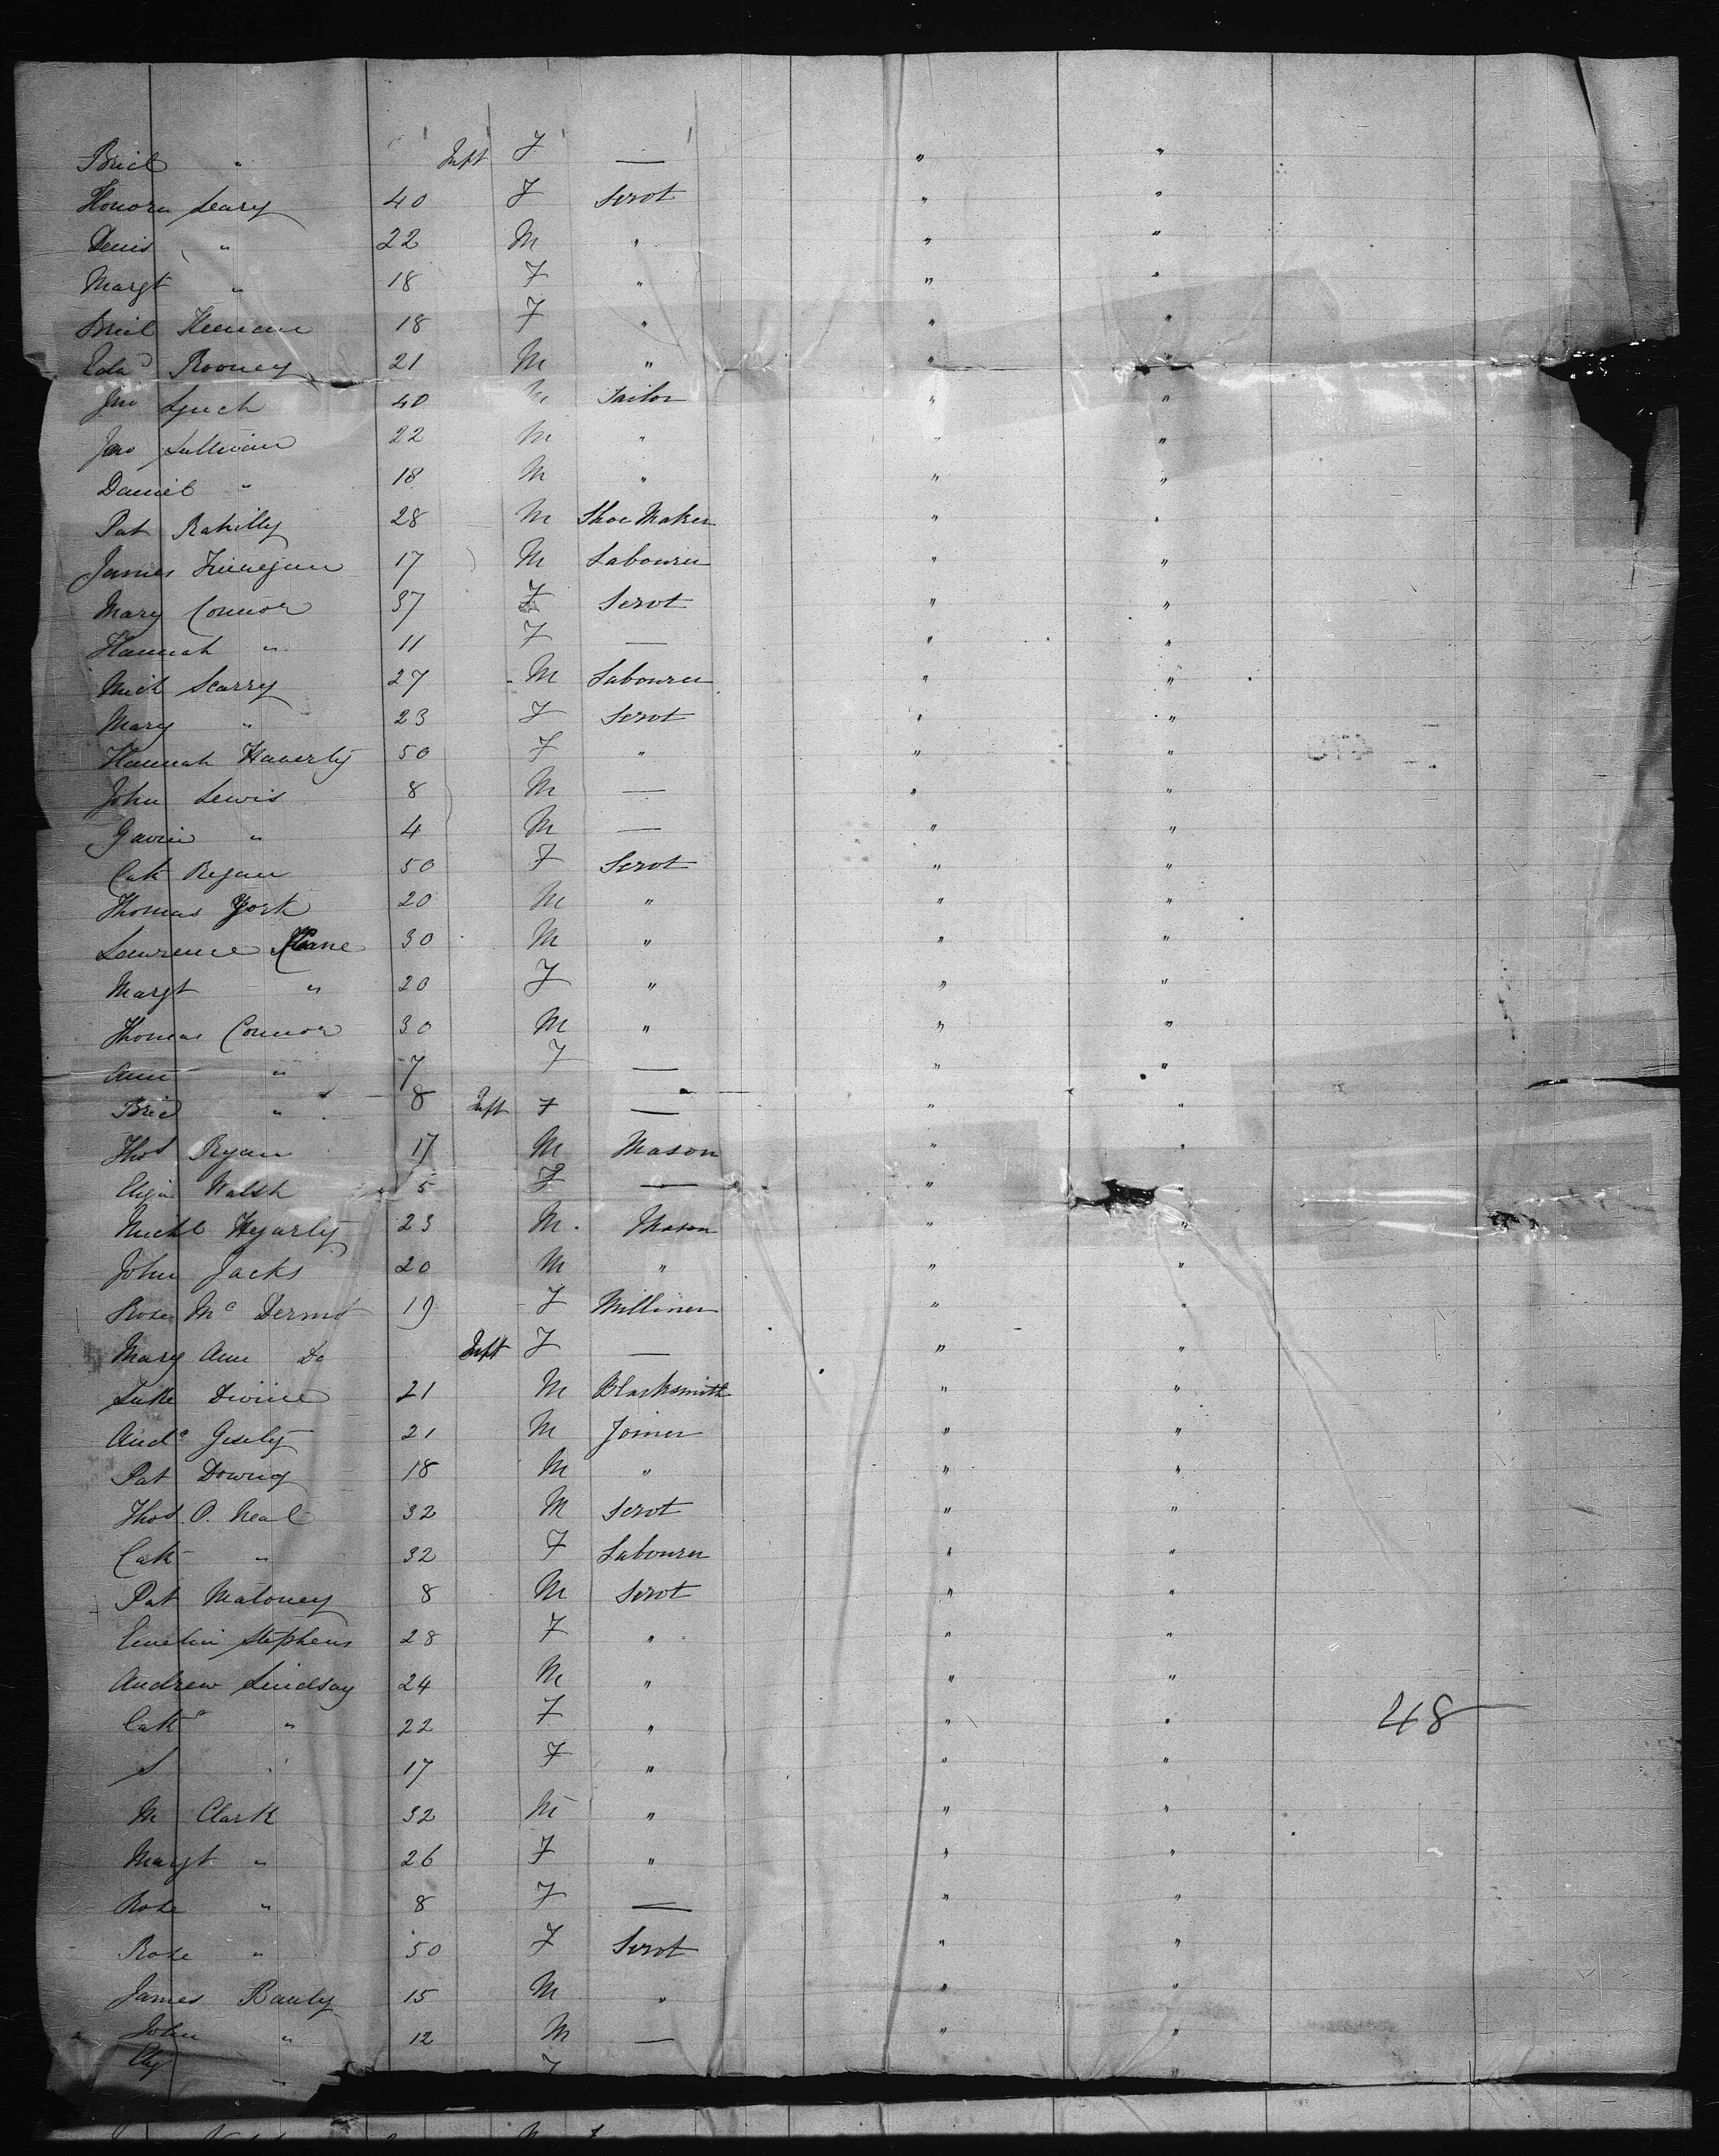 Brid " Inft F — " "
Honora Leary 40 F Servt " "
Denis " 22 M " " "
Margt " 18 F " " "
Brid Keenan 18 F " " "
Edwd Rooney 21 M " " "
Jno Lynch 40 M Tailor " "
Jno Sullivan 22 M " " "
Daniel " 18 M " " "
Pat Rahilly 28 M Shoe Maker " "
James Finnegan 17 M Labourer " "
Mary Connor 37 F Servt " "
Hannah " 11 F — " "
Mich Scarry 27 M Labourer " "
Mary " 23 F Servt " "
Hannah Haverty 50 F " " "
John Lewis 8 M — " "
Gavin " 4 M — " "
Cath Regan 50 F Servt " "
Thomas York 20 M " " "
Lawrence Kane 30 M " " "
Margt " 20 F " " "
Thomas Connor 30 M " " "
Ann " 7 F — " "
Brid " 8 Inft F — " "
Thos Ryan 17 M Mason " "
Eliza Walsh 5 F — " "
Michl Hegarty 23 M Mason " "
John Jacks 20 M " " "
Rose Mc Dermot 19 F Milliner " "
Mary Ann Do Inft F — " "
Luke Divine 21 M Blacksmith " "
Andw 21 M Joiner " "
Pat 18 M " " "
Thos O. Neal 32 M Servt " "
Cath " 32 F Labourer " "
Pat Maloney 8 M Servt " "
Emelin Stephens 28 F " " "
Andrew Lindsay 24 M " " "
Cath " 22 F " " " 48
S " 17 F " " "
M Clark 32 M " " "
Margt " 26 F " " "
Rose " 8 F — " "
Rose " 50 F Servt " "
James Bauly 15 M " " "
John " 12 M — " "
" F